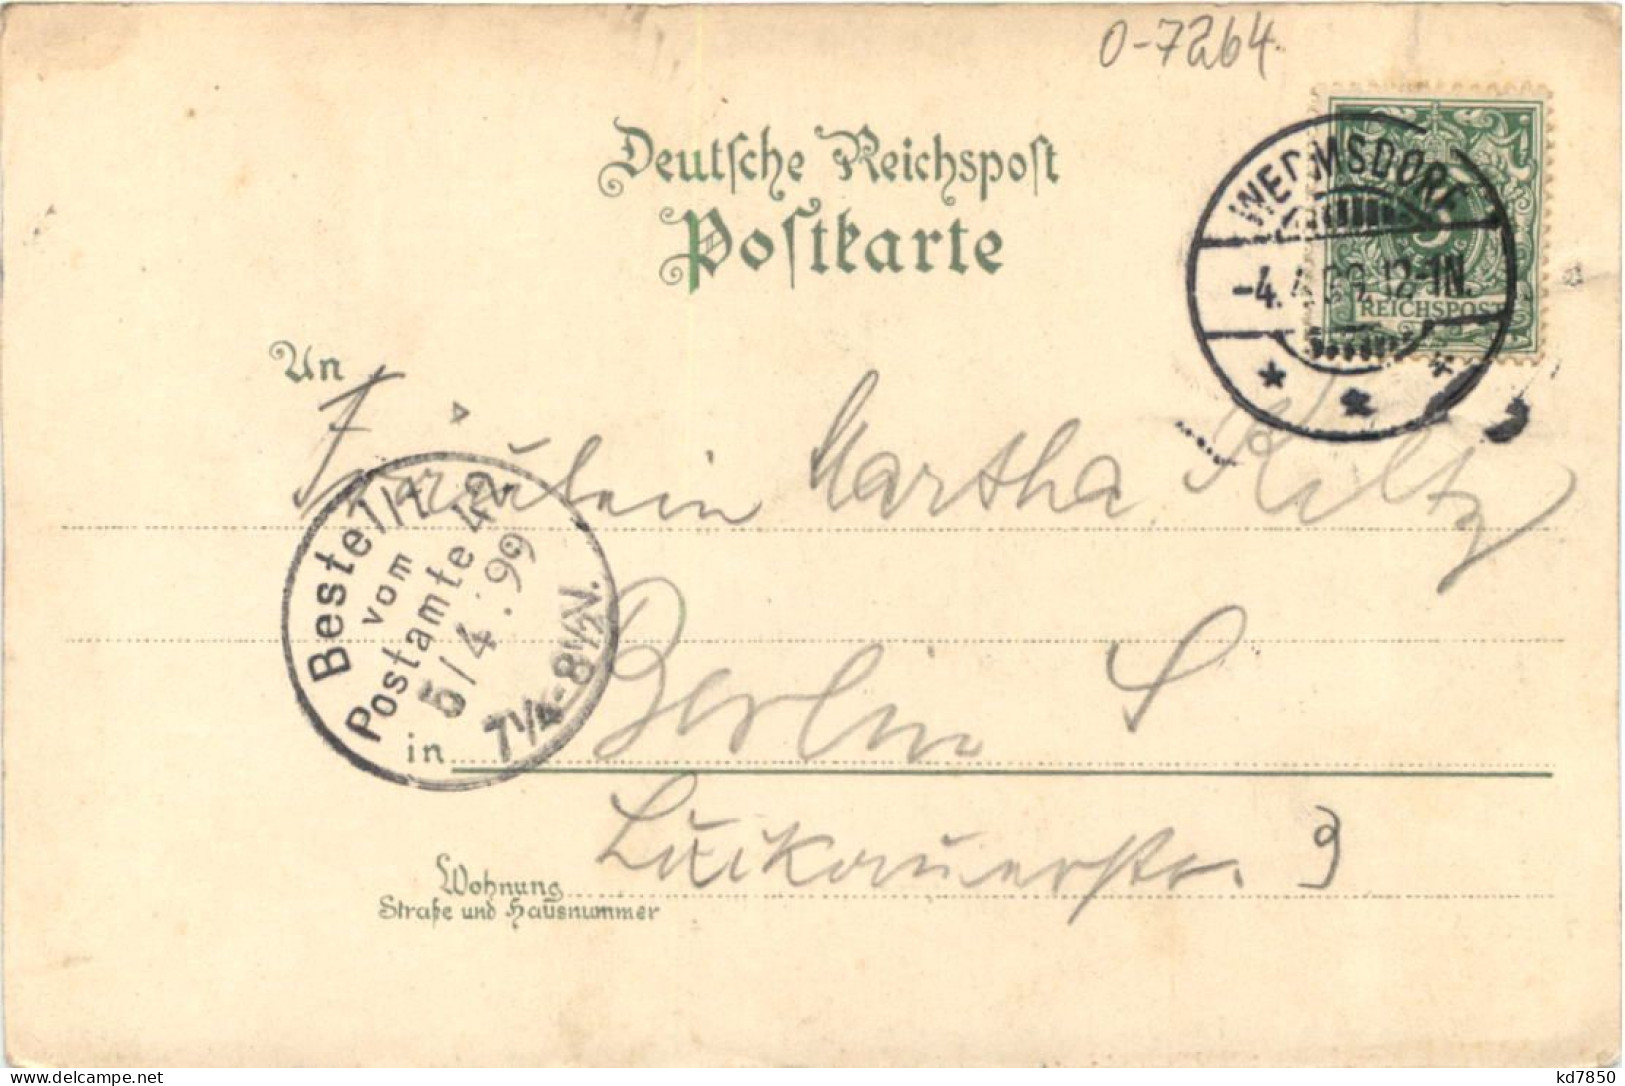 0-7264
Deutsche Reichspost
Postkarte
WERMSDORF
-4.4.99.12-1N.
REICHSPOST
An
Fräulein Martha Kiltz
Bestellt
vom
Postamte 42
5/4.99
7¼-8½N.
in Berlin S
Luckauerstr. 9
Wohnung
Straße und Hausnummer
kd7850